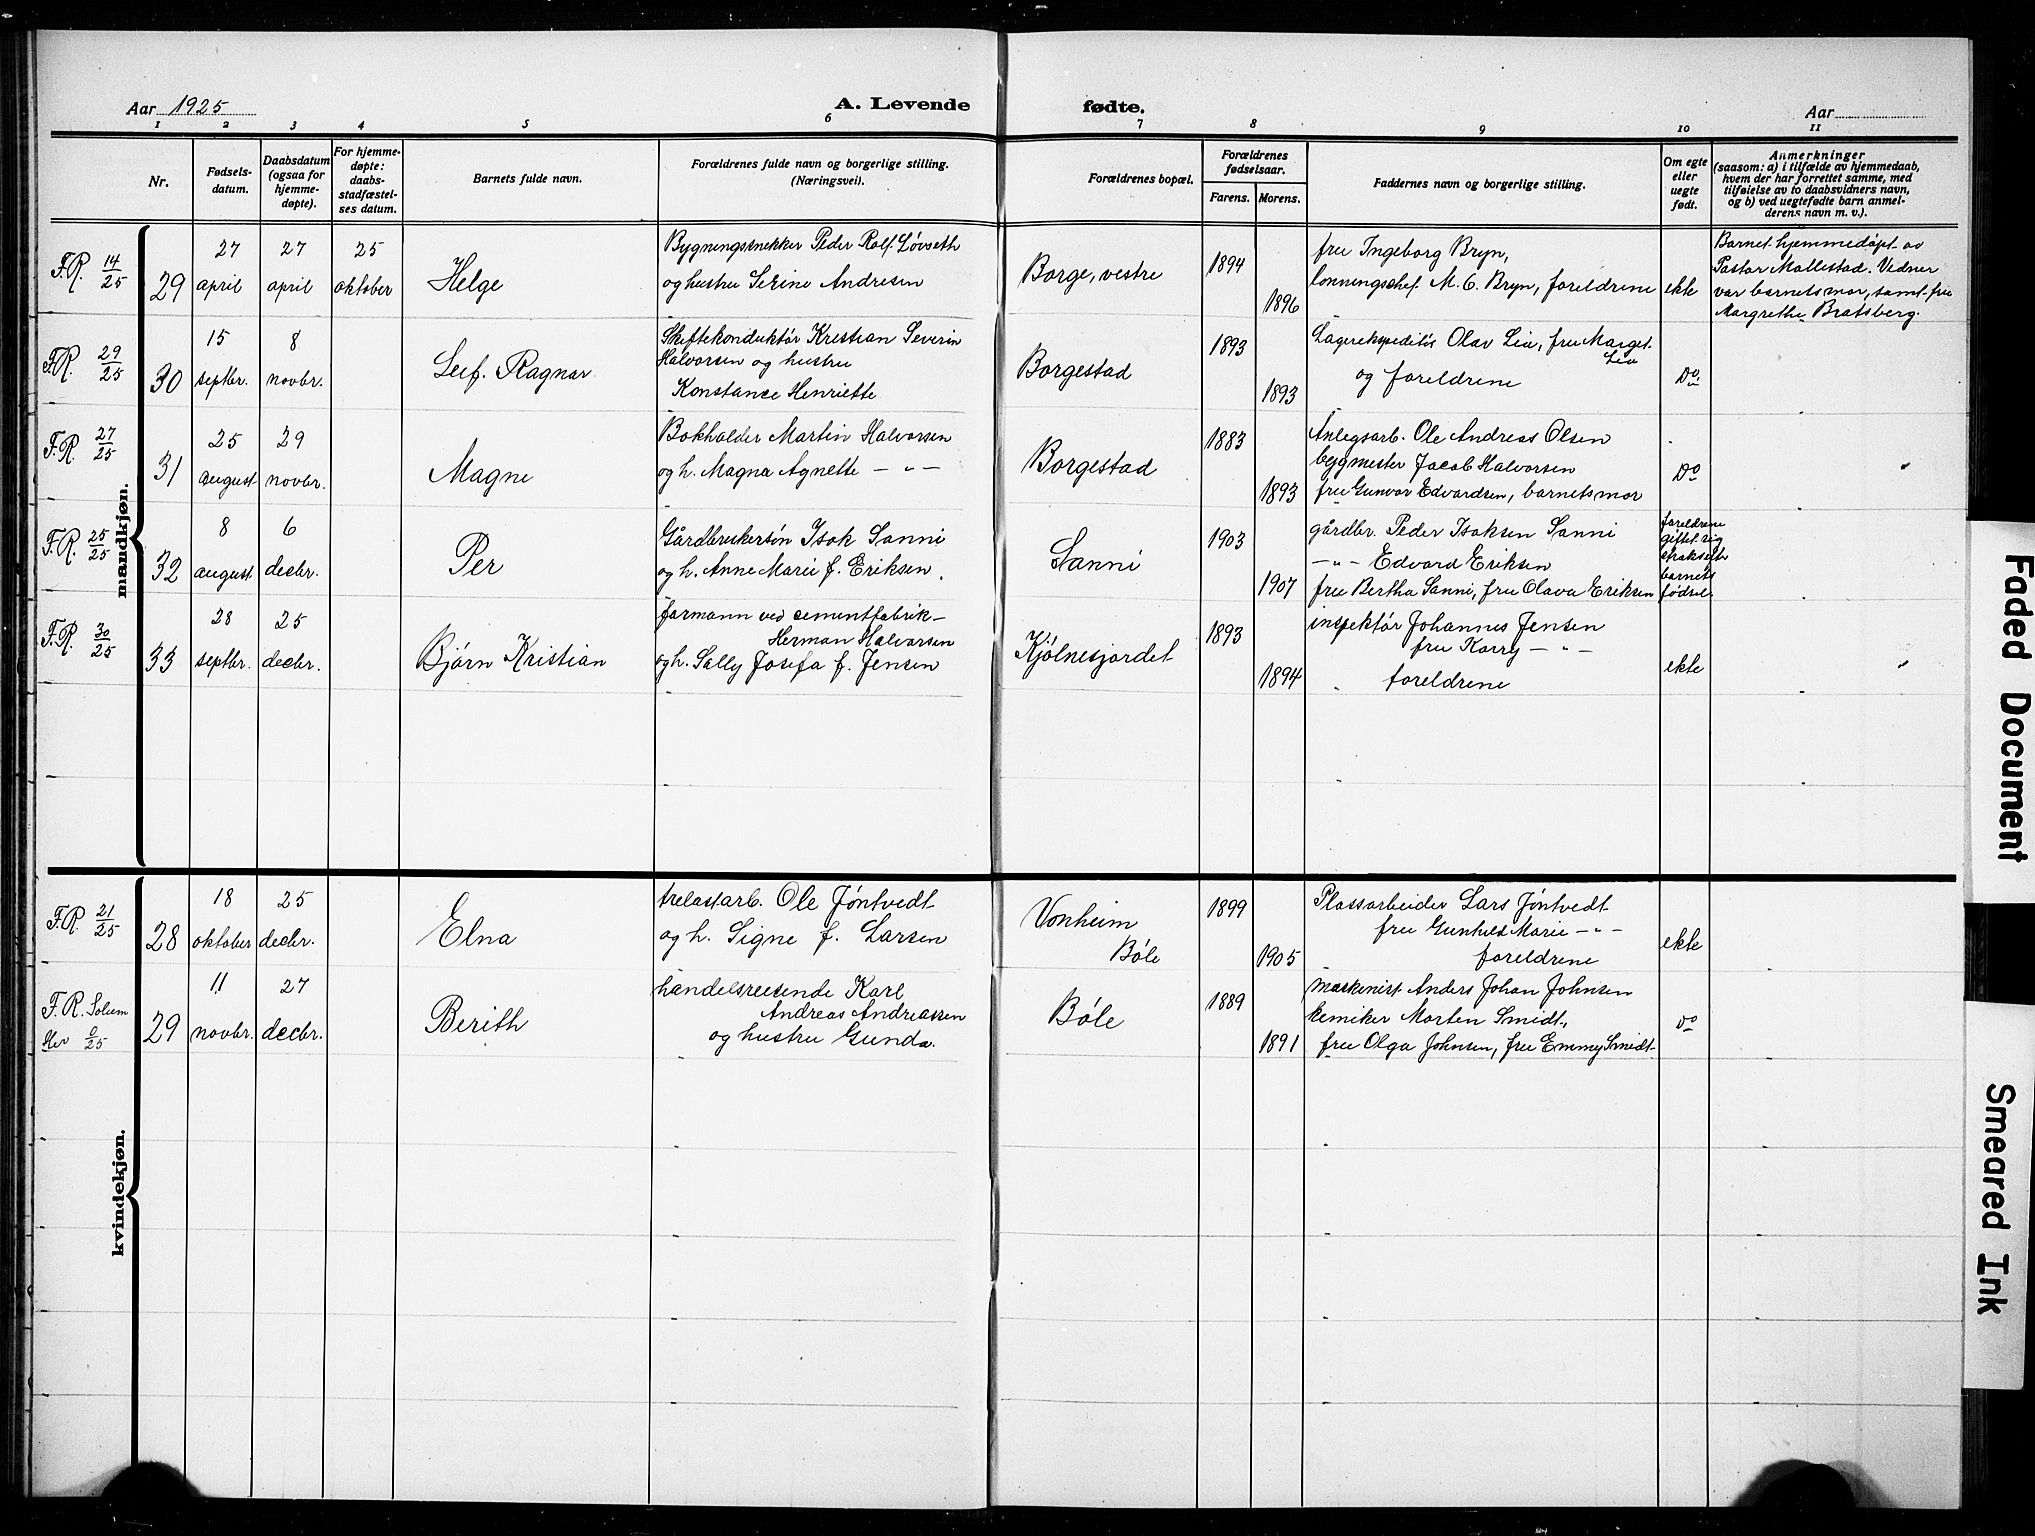 Aar 1925
A. Levende fødte.
Aar
1 2 3 4 5 6 7 8 9 10 11
Nr.
Fødsels-
datum.
Daabsdatum
(ogsaa for
hjemme-
døpte).
For hjemme-
døpte:
daabs-
stadfæstel-
ses datum.
Barnets fulde navn.
Forældrenes fulde navn og borgerlige stilling.
(Næringsvei).
Forældrenes bopæl.
Forældrenes
fødselsaar.
Farens. Morens.
Faddernes navn og borgerlige stilling.
Om egte
eller
uegte
født.
Anmerkninger
(saasom: a) i tilfælde av hjemmedaab,
hvem der har forrettet samme, med
tilføielse av to daabsvidners navn,
og b) ved uegtefødte barn anmel-
derens navn m. v.).
mandkjøn.
F.R. 14/25
29
27 april
27 april
25 oktober
Helge
Bygningssnekker Peder Rolf Løvseth
og hustru Serine Andresen
Borge, vestre
1894
1896
fru Ingeborg Bryn,
lonningschef M. C. Bryn, foreldrene
ekte
Barnet hjemmedøpt av
Pastor Mollestad. Vidner
var barnets mor, samt fru
Margrethe Bratsberg.
F.R. 29/25
30
15 septbr.
8 novbr.
Leif. Ragnar
Skiftekonduktør Kristian Severin
Halvorsen og hustru
Konstanse Henriette
Borgestad
1893
1893
Lagerekspeditør Olav Lia, fru Marget
Lia
og foreldrene
Do
F.R. 27/25
31
25 august
29 novbr.
Magne
Bokholder Martin Halvorsen
og h. Magna Agnette — " —
Borgestad
1883
1893
Anlegsarb. Ole Andreas Olsen
bygmester Jacob Halvorsen
fru Gunvor Edvardsen, barnets mor
Do
F.R. 25/25
32
8 august
6 decbr.
Per
Gårdbrukersøn Isak Sanni
og h. Anne Marie f. Eriksen
Sanni
1903
1907
gårdbr. Peder Isaksen Sanni
— " — Edvard Eriksen
fru Bertha Sanni, fru Olava Eriksen
foreldrene
giftet sig
barnets
fødsel
F.R. 30/25
33
28 septbr.
25 decbr.
Bjørn Kristian
formann ved cementfabrik—
Herman Halvorsen
og h. Sally Josefa f. Jensen
Kjølnesjordet
1893
1894
inspektør Johannes Jensen
fru Karry — " —
foreldrene
ekte
kvindekjøn.
F.R. 21/25
28
18 oktober
25 decbr.
Elna
trelastarb. Ole Jøntvedt
og h. Signe f. Larsen
Vonheim
Bøle
1899
1905
Plassarbeider Lars Jøntvedt
fru Gunhild Marie — " —
foreldrene
ekte
F.R. Solum
Her 0/25
29
11 novbr.
27 decbr.
Berith
handelsreisende Karl
Andreas Andreassen
og hustru Gunda.
Bøle
1889
1891
maskinist Anders Johan Johnsen
kemiker Morten Smidt,
fru Olga Johnsen, fru Emmy Smidt
Do
Faded Document
Smeared Ink